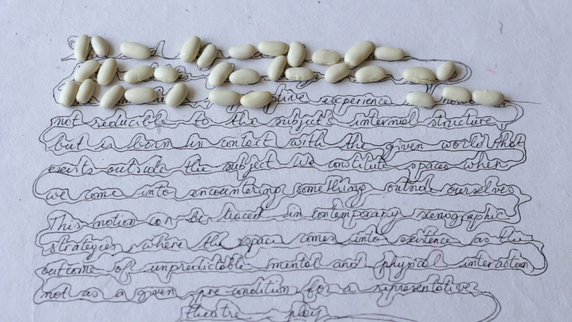 experience
not reducible to the subject's internal structure
but is born in contact with the given world that
exists outside the subject We constitute spaces when
we come into encountering something outside ourselves
This notion can be traced in contemporary scenographic
strategies where the space comes into existence as the
outcome of unpredictable mental and physical interaction
not as a given pre-condition for a representative
theatre play